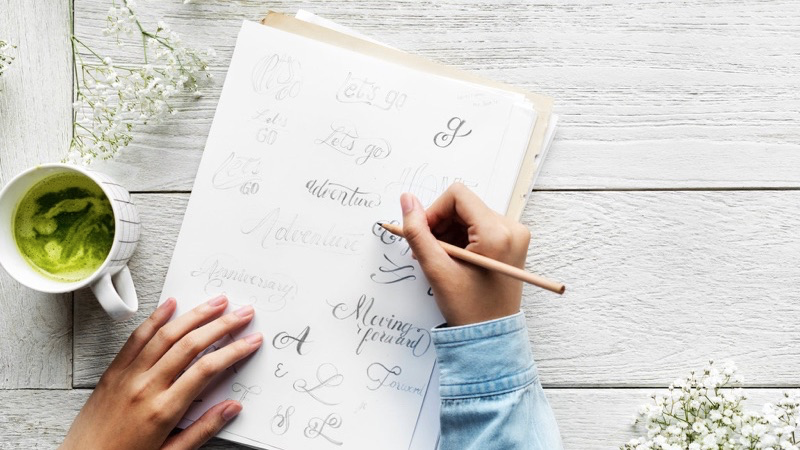 Let's go
Let's
GO
Let's go
g
Let's
GO
adventure
Adventure
Anniversary
Moving
forward
A
Forward